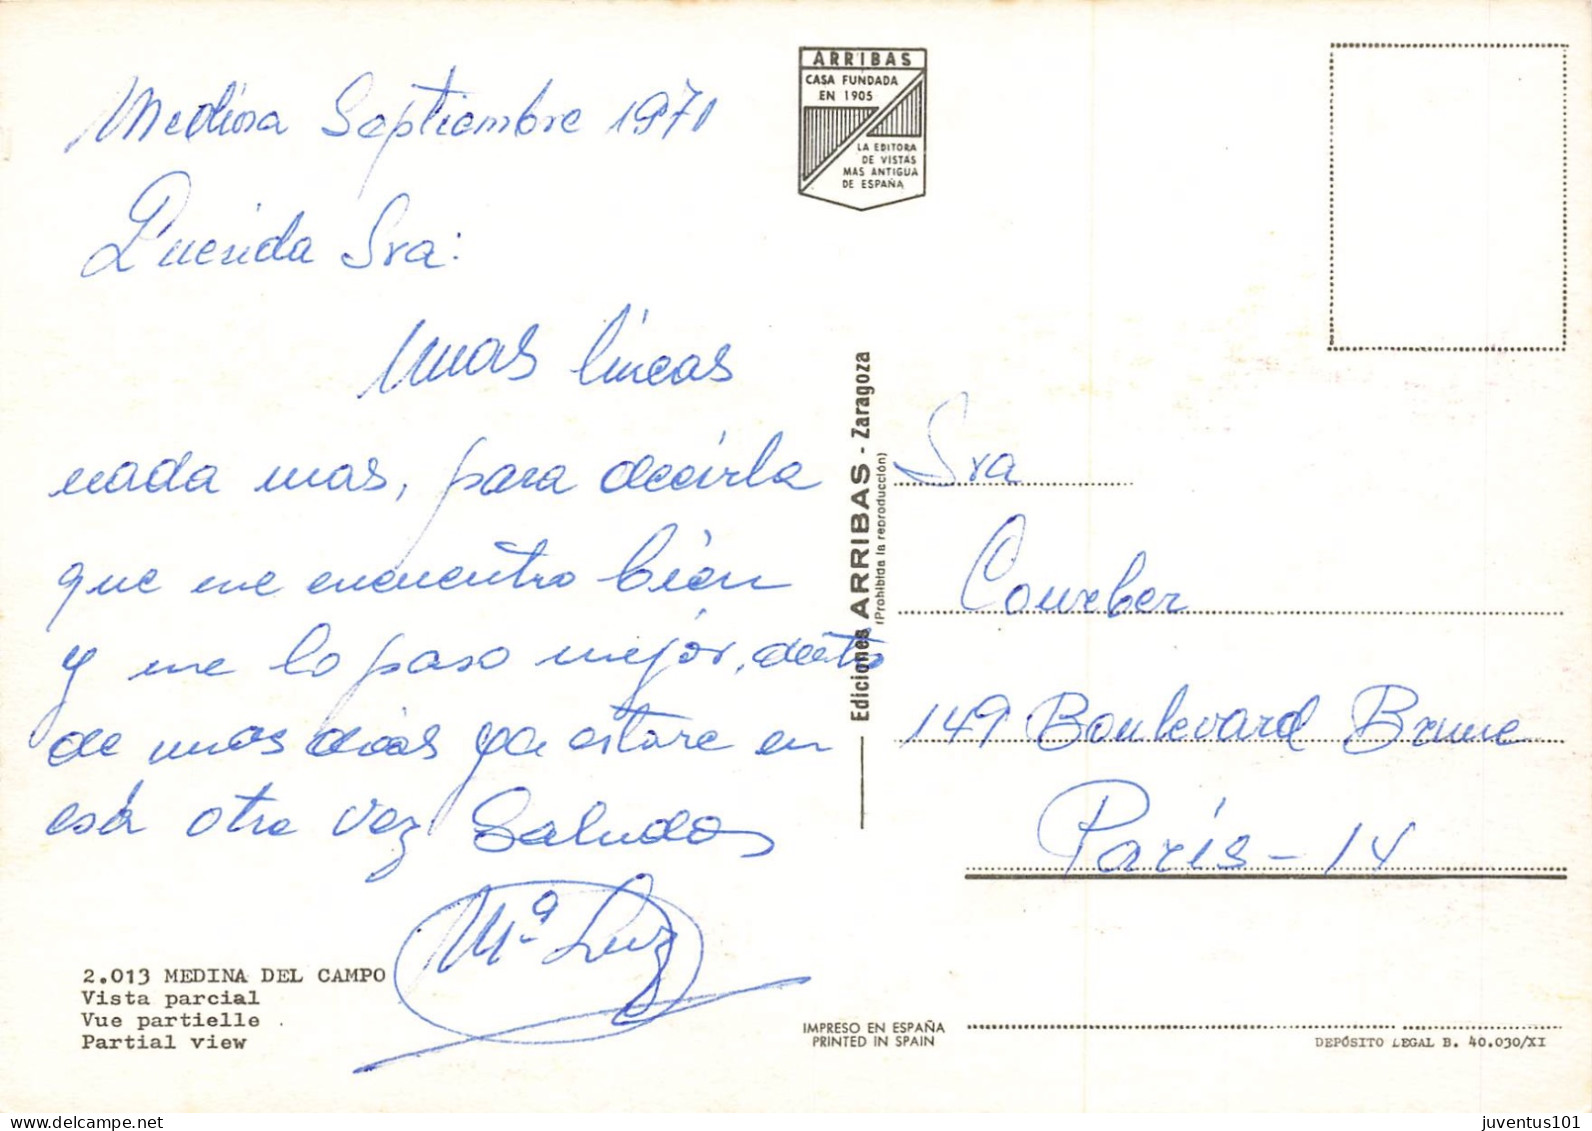 Medina Septiembre 1971
Querida Sra:
Unas líneas
nada mas, para decirla
que me encuentro bien
y me lo paso mejor, dentro
de unos dias ya estare en
esa otra vez Saludos
Mª Luz
2.013 MEDINA DEL CAMPO
Vista parcial
Vue partielle
Partial view
ARRIBAS
CASA FUNDADA
EN 1905
LA EDITORA
DE VISTAS
MAS ANTIGUA
DE ESPAÑA
Ediciones ARRIBAS - Zaragoza
(Prohibida la reproducción)
Sra
Courber
149 Boulevard Brune
París - 14
IMPRESO EN ESPAÑA
PRINTED IN SPAIN
DEPÓSITO LEGAL B. 40.030/XI
juventus101